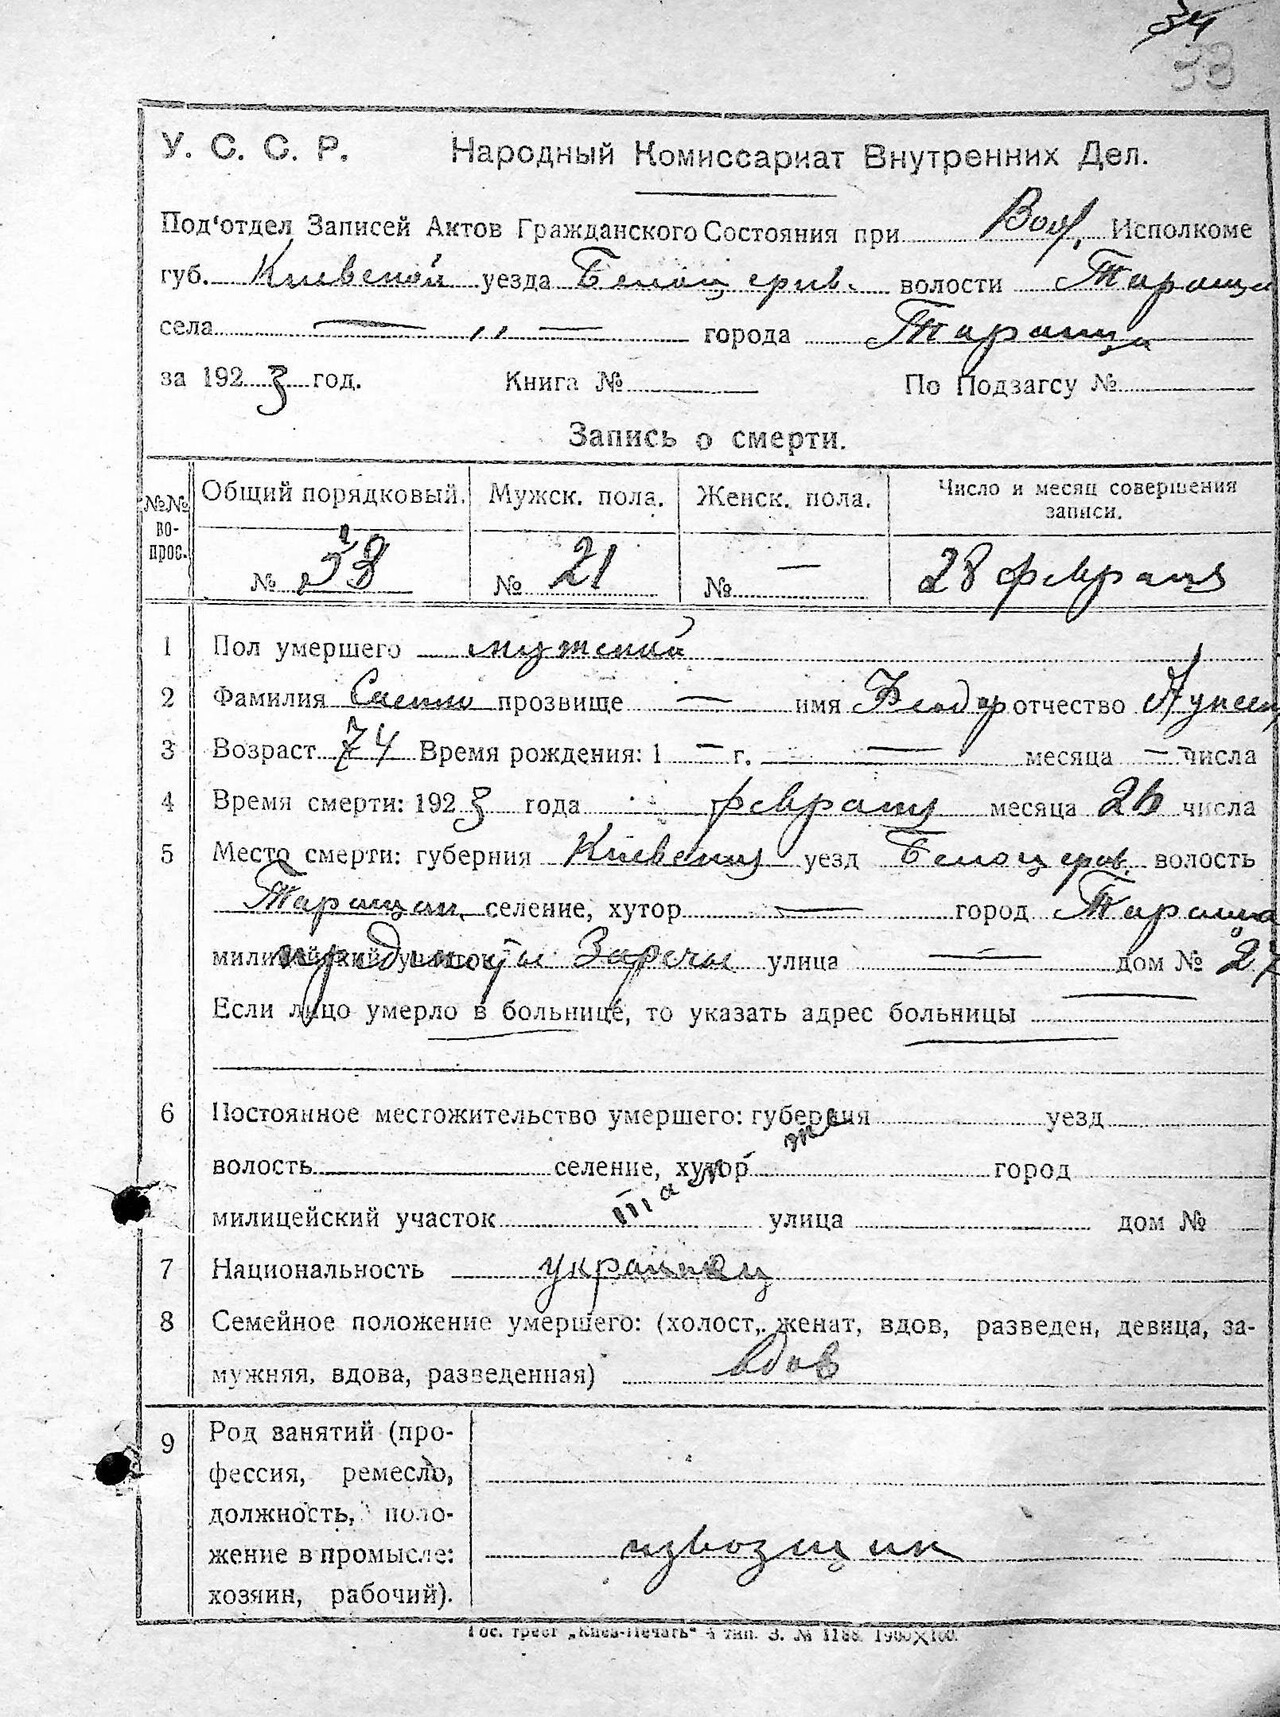 34
33
У. С. С. Р. Народный Комиссариат Внутренних Дел.
Под'отдел Записей Актов Гражданского Состояния при Вол. Исполкоме
губ. Киевской уезда Белоцерков. волости Тараща
села — „ — города Тараща
за 1923 год. Книга № По Подзагсу №
Запись о смерти.
№№ во-прос. Общий порядковый. Мужск. пола. Женск. пола. Число и месяц совершения записи.
№ 38 № 21 № — 28 февраля
1 Пол умершего мужской
2 Фамилия прозвище — имя Феодор отчество
3 Возраст 74 Время рождения: 1 — г. — месяца — числа
4 Время смерти: 1923 года февраля месяца 26 числа
5 Место смерти: губерния Киевская уезд Белоцерков. волость
Таращан. селение, хутор — город Тараща
милицейский участок предместье Заречье улица — дом № 27
Если лицо умерло в больнице, то указать адрес больницы
6 Постоянное местожительство умершего: губерния уезд
волость селение, хутор город
милицейский участок там же улица дом №
7 Национальность украинец
8 Семейное положение умершего: (холост, женат, вдов, разведен, девица, за-
мужняя, вдова, разведенная) вдов
9 Род занятий (про-
фессия, ремесло,
должность, поло-
жение в промысле: извозщик
хозяин, рабочий).
Гос. трест „Киев-Печать“ 4 тип. З. № 1188. 1900×100.